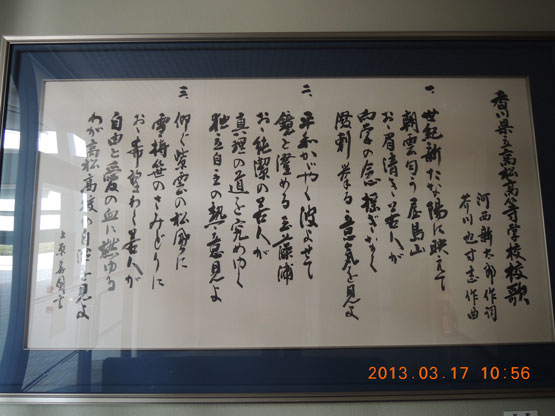 香川県立高松高等学校校歌
河西新太郎作詞
芥川也寸志作曲
一、世紀新たな陽に映えて
朝雲匂う屋島山
おゝ眉清き若人が
向学の念極ぎなく
溌剌挙る意気を見よ
二、平和かゞやく波よせて
鏡と澄める玉藻浦
おゝ純潔の若人が
真理の道を究めゆく
独立自主の熱意見よ
三、仰ぐ紫雲の松風に
雪持笹のさみどりに
おゝ希望わく若人が
自由と愛の血に燃ゆる
わが高松高校の
見よ
2013.03.17 10:56